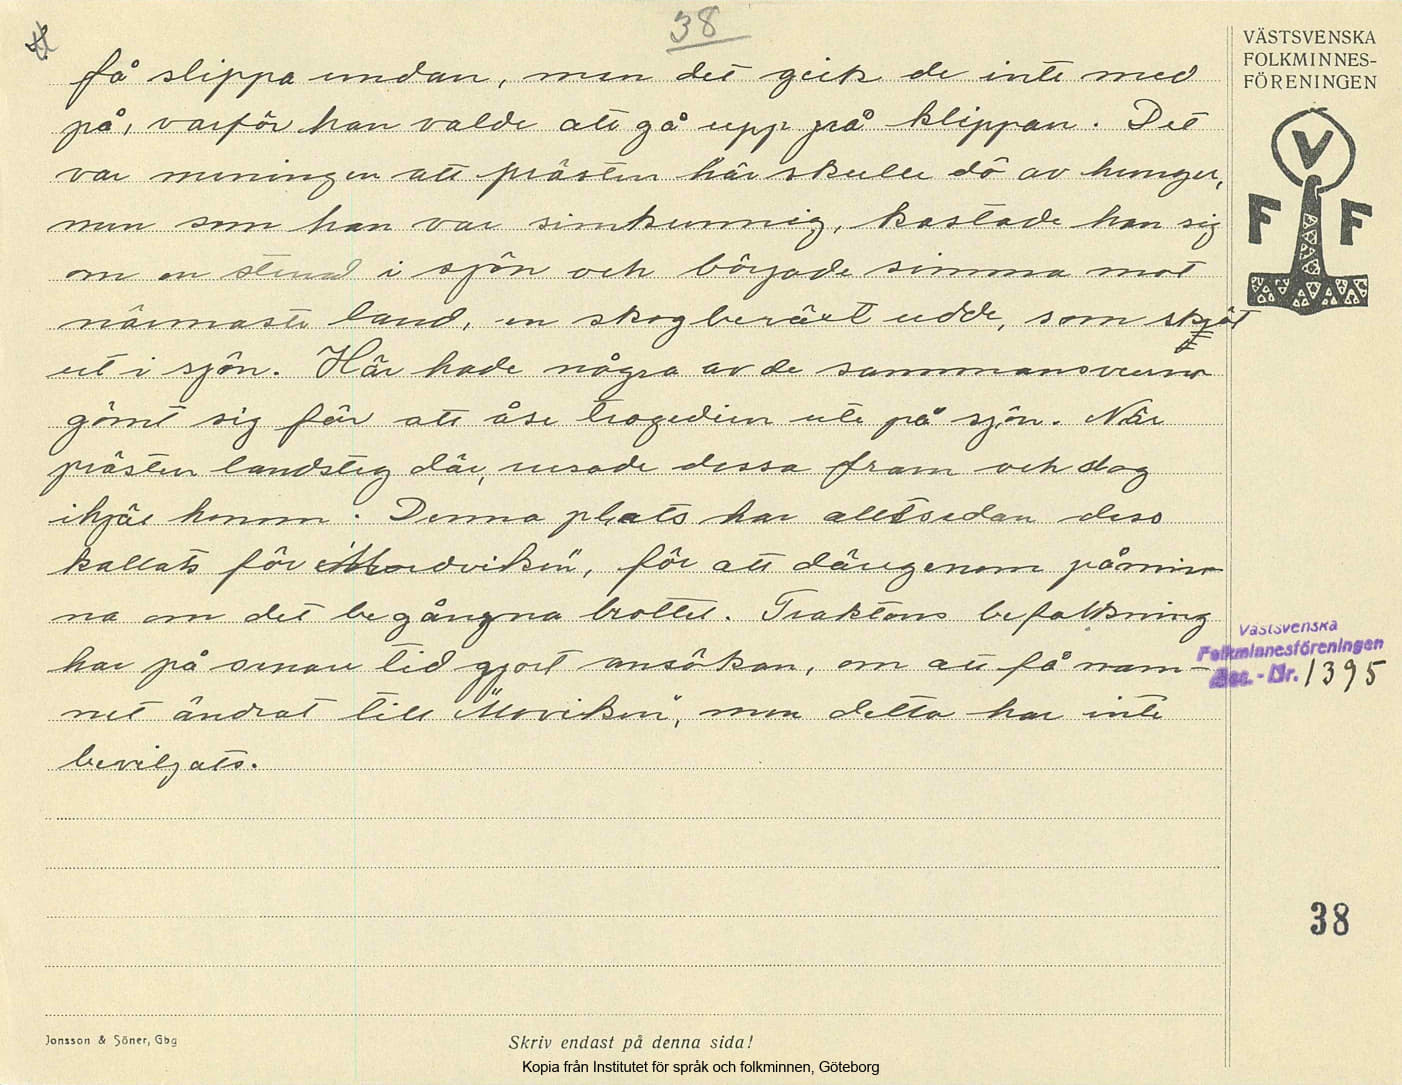 38
få slippa undan, men det gick de inte med
på, varför han valde att gå upp på klippan. Det
var meningen att prästen här skulle dö av hunger,
men som han var simkunnig, kastade han sig
om en stund i sjön och började simma mot
närmaste land, en skogbeväxt udde, som skjöt
ut i sjön. Här hade några av de sammansvurna
gömt sig för att åse tragedien ute på sjön. När
prästen landsteg där, rusade dessa fram och slog
ihjäl honom. Denna plats har alltsedan dess
kallats för "Mordviken", för att därigenom påmin-
na om det begångna brottet. Traktens befolkning
har på senare tid gjort ansökan, om att få nam-
net ändrat till "Moviken", men detta har inte
beviljats.
VÄSTSVENSKA
FOLKMINNES-
FÖRENINGEN
V
F F
Västsvenska
Folkminnesföreningen
Acc.-Nr. 1395
38
Jonsson & Söner, Gbg
Skriv endast på denna sida!
Kopia från Institutet för språk och folkminnen, Göteborg